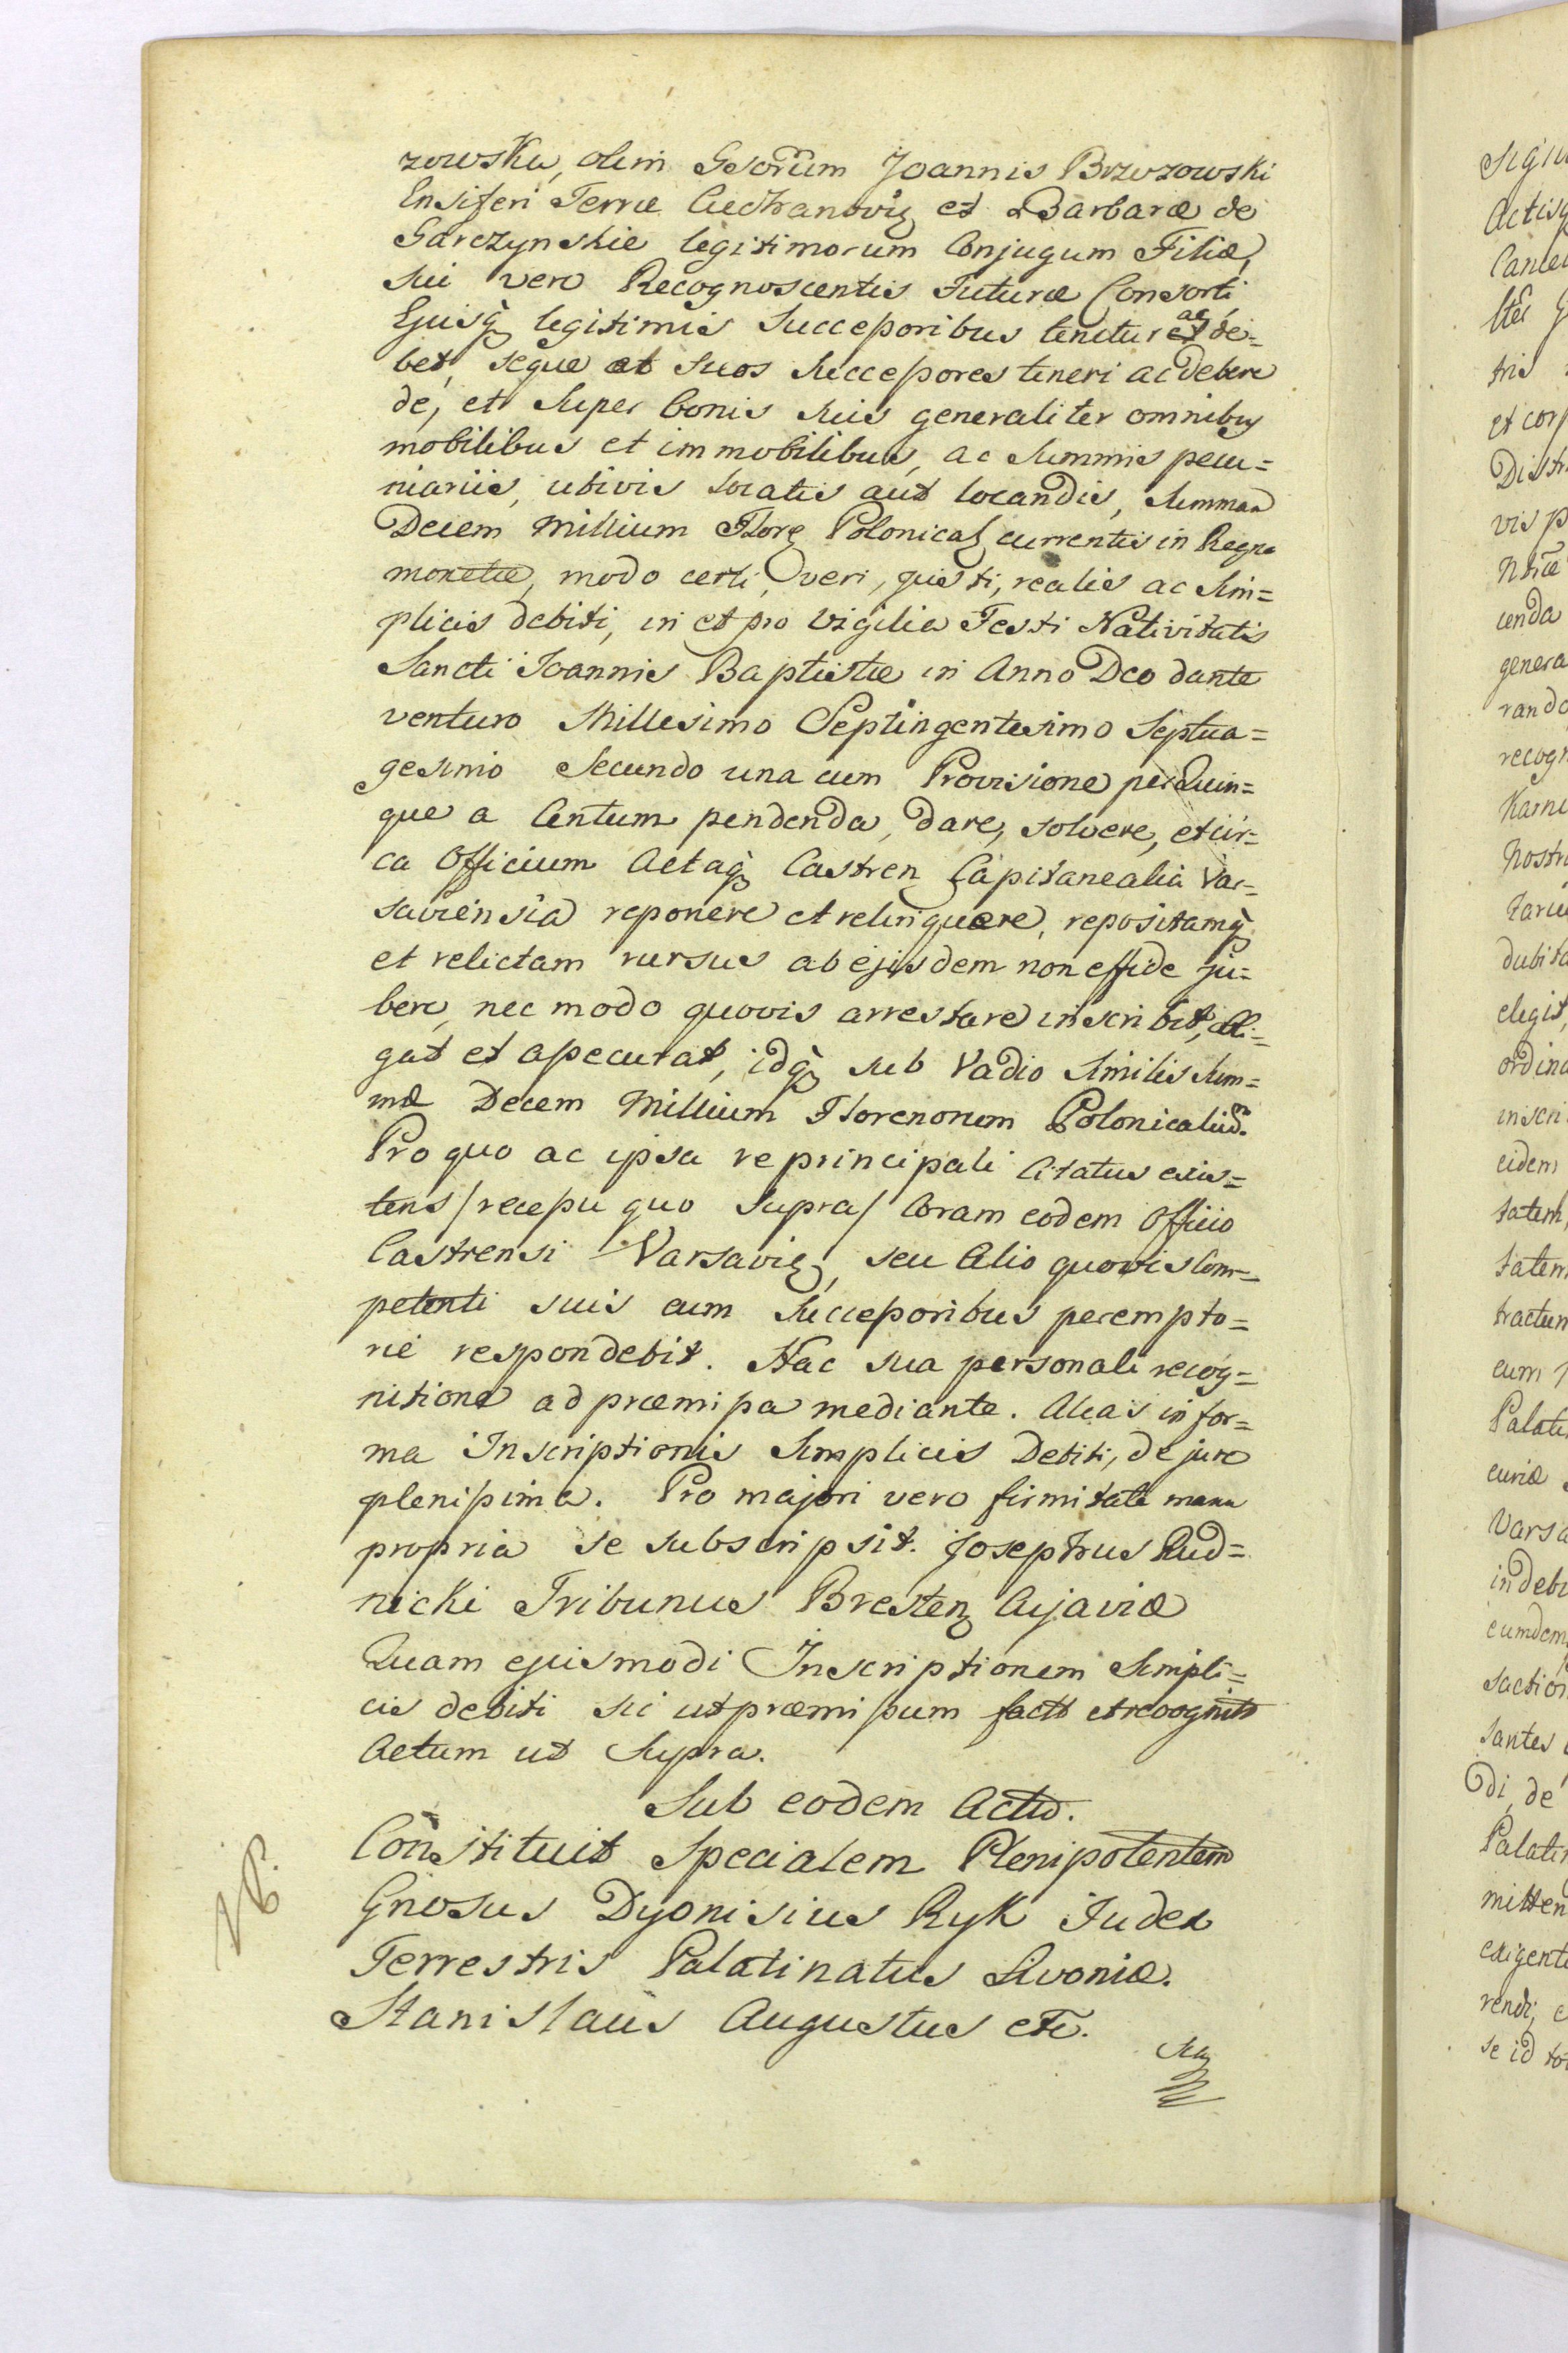 zowska, olim Gsorum Joannis Brzozowski
Ensiferi Terræ Ciechanoviẽ et Barbaræ de
Garczynskie legitimorum Conjugum Filiæ,
sui vero Recognoscentis Futuræ Consorti
Ejusq̀ legitimis Successoribus tenetur ac de=
bet, seque et suos Successores teneri ac debere
de, et super bonis suis generaliter omnibus
mobilibus et immobilibus, ac summis pecu=
niariis, ubivis locatis aut locandis, summam
Decem Millium Flore Polonical currentis in Regno
monetæ, modo certi, veri, justi, realis ac sim=
plicis debiti, in et pro Vigilia Festi Nativitatis
Sancti Joannis Baptistæ in Anno Deo dante
venturo Millesimo Septingentesimo Septua=
gesimo Secundo una cum Provisione per Quin=
que a Centum pendenda, dare, solvere, et cir=
ca Officium Actaq̀ Castren Capitanealia Var=
saviensia reponere et relinquere, repositamq̀
et relictam rursus ab ejisdem non effide ju=
bere, nec modo quovis arrestare inscribit, obli=
gat et assecurat, idq̀ sub Vadio similis sum=
mæ Decem Millium Florenorum Polonicaliũ.
Pro quo ac ipsa re principali Citatus exis=
tens /recessu quo supra/ Coram eodem Officio
Castrensi Varsaviẽ, seu alio quovis Com=
petenti suis cum Successoribus perempto=
rie respondebit. Hac sua personali recog=
nitione ad præmissa mediante. Alias in for=
ma Inscriptionis Simplicis Debiti, de jure
plenissima. Pro majori vero firmitate manu
propria se subscripsit. Josephus Rud=
nicki Tribunus Bresten Cujaviæ
Quam ejusmodi Inscriptionem Simpli=
cis debiti sic ut præmissum factt et recognitt
Actum ut Supra.
Sub eodem Actu.
Constituit Specialem Plenipotentem
Gnosus Dyonisius Ryk Judex
Terrestris Palatinatus Livoniæ.
Stanislaus Augustus etc.